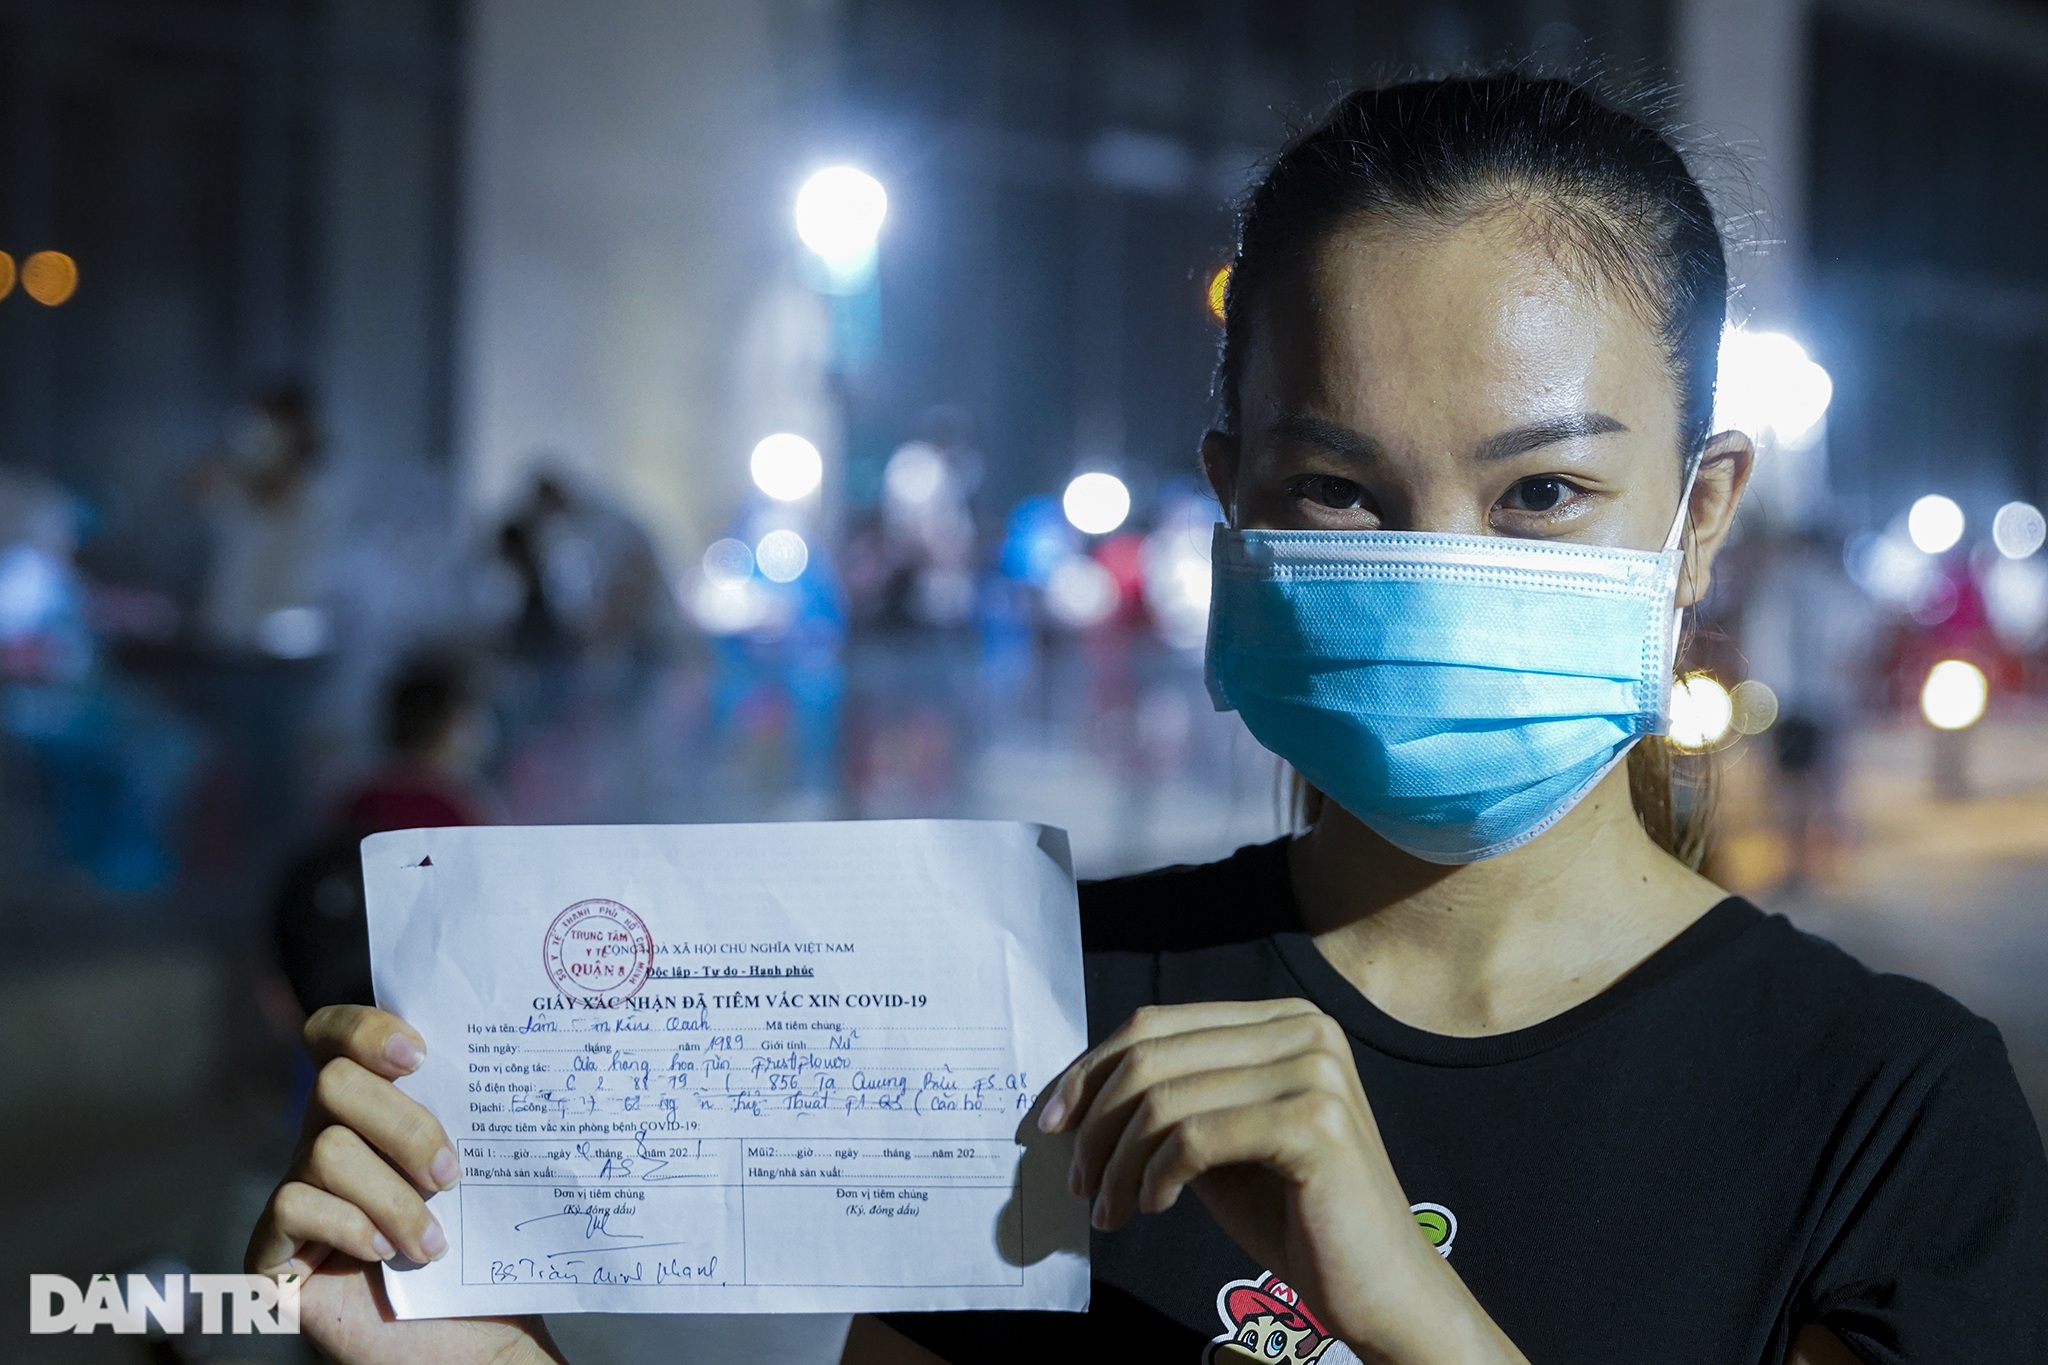 SỞ Y TẾ THÀNH PHỐ HỒ CHÍ MINH
TRUNG TÂM
Y TẾ
QUẬN 8
CỘNG HOÀ XÃ HỘI CHỦ NGHĨA VIỆT NAM
Độc lập - Tự do - Hạnh phúc
GIẤY XÁC NHẬN ĐÃ TIÊM VẮC XIN COVID-19
Họ và tên: Lâm Kim Oanh Mã tiêm chủng:
Sinh ngày: tháng năm 1989 Giới tính Nữ
Đơn vị công tác: Cửa hàng hoa
Số điện thoại: 856 Tạ Quang Bửu F5 Q8
Địa chỉ: Thuật
Đã được tiêm vắc xin phòng bệnh COVID-19:
Mũi 1: giờ ngày tháng 8 năm 2021
Hãng/nhà sản xuất: ASZ
Đơn vị tiêm chủng
(Ký, đóng dấu)
BS Trần Minh
Mũi2: giờ ngày tháng năm 202
Hãng/nhà sản xuất:
Đơn vị tiêm chủng
(Ký, đóng dấu)
M
DÂN TRÍ